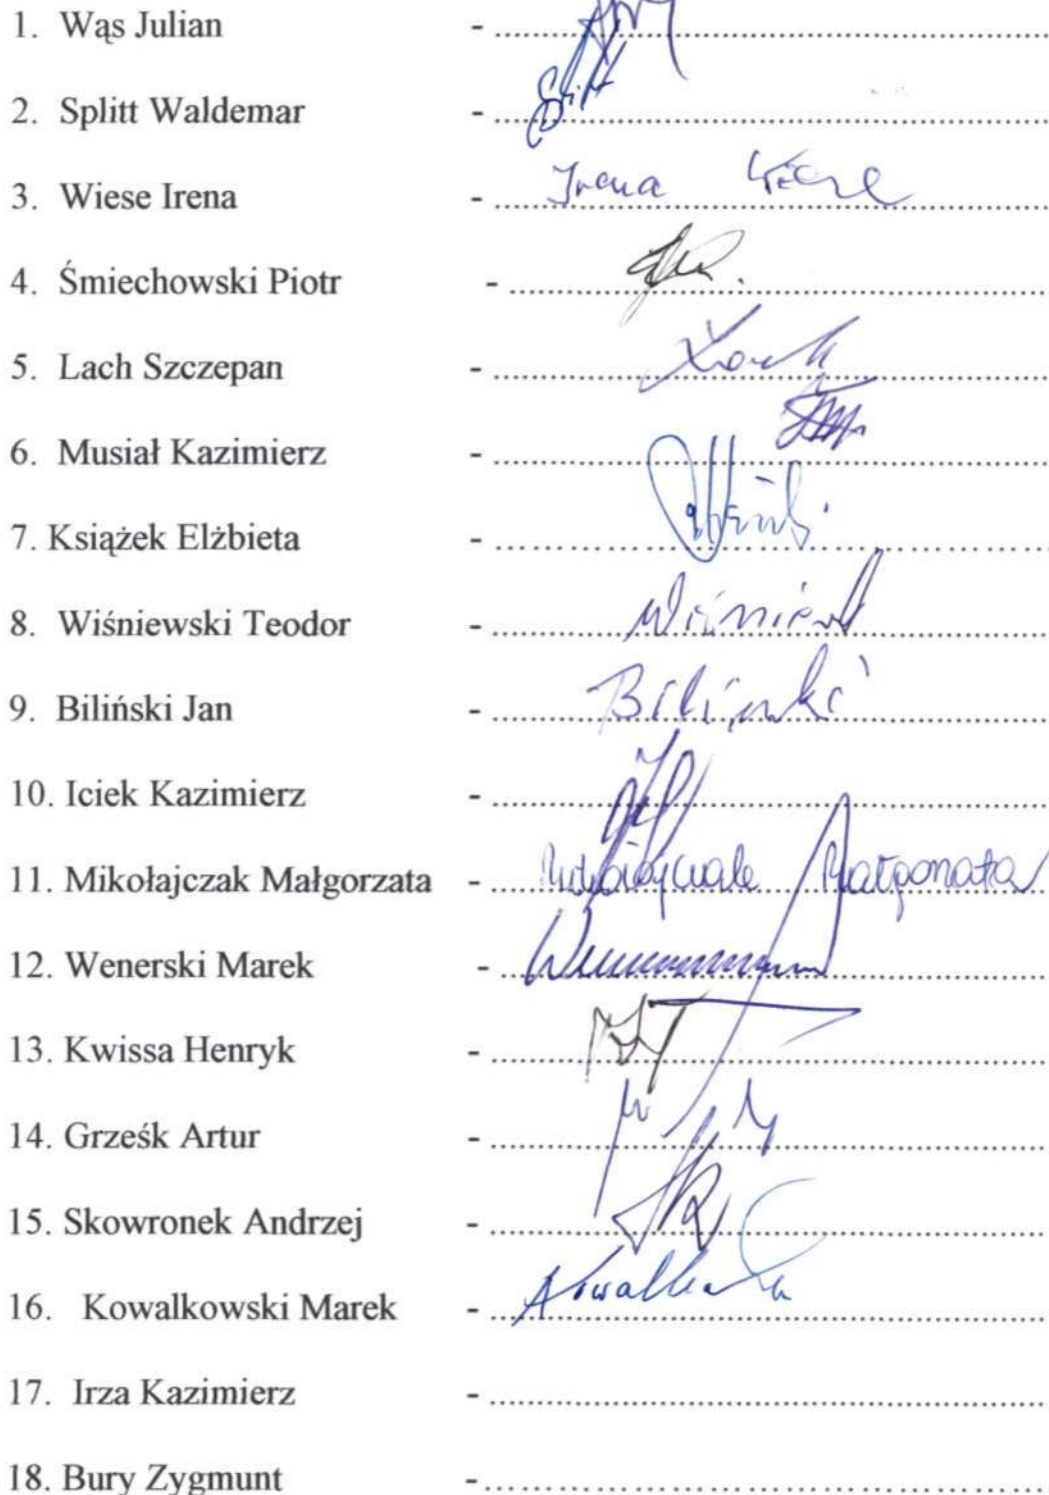 1. Wąs Julian - ........................................
2. Splitt Waldemar - ........................................ Splitt
3. Wiese Irena - ........................................ Irena Wiese
4. Śmiechowski Piotr - ........................................
5. Lach Szczepan - ........................................ Lach
6. Musiał Kazimierz - ........................................
7. Książek Elżbieta - ........................................
8. Wiśniewski Teodor - ........................................
9. Biliński Jan - ........................................ Biliński
10. Iciek Kazimierz - ........................................
11. Mikołajczak Małgorzata - ........................................ Małgorzata
12. Wenerski Marek - ........................................
13. Kwissa Henryk - ........................................
14. Grześk Artur - ........................................
15. Skowronek Andrzej - ........................................
16. Kowalkowski Marek - ........................................
17. Irza Kazimierz - ........................................
18. Bury Zygmunt - ........................................